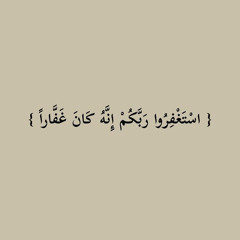 { اسْتَغْفِرُوا رَبَّكُمْ إِنَّهُ كَانَ غَفَّاراً }